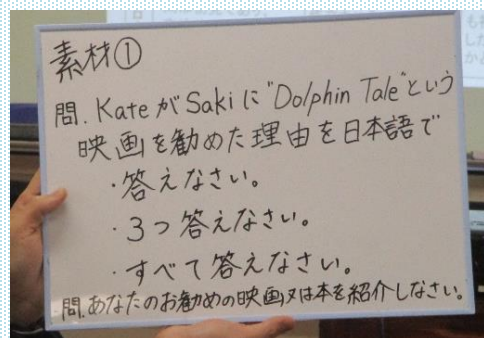 素材①
問. KateがSakiに"Dolphin Tale"という
映画を勧めた理由を日本語で
・答えなさい。
・3つ答えなさい。
・すべて答えなさい。
問. あなたのお勧めの映画又は本を紹介しなさい。